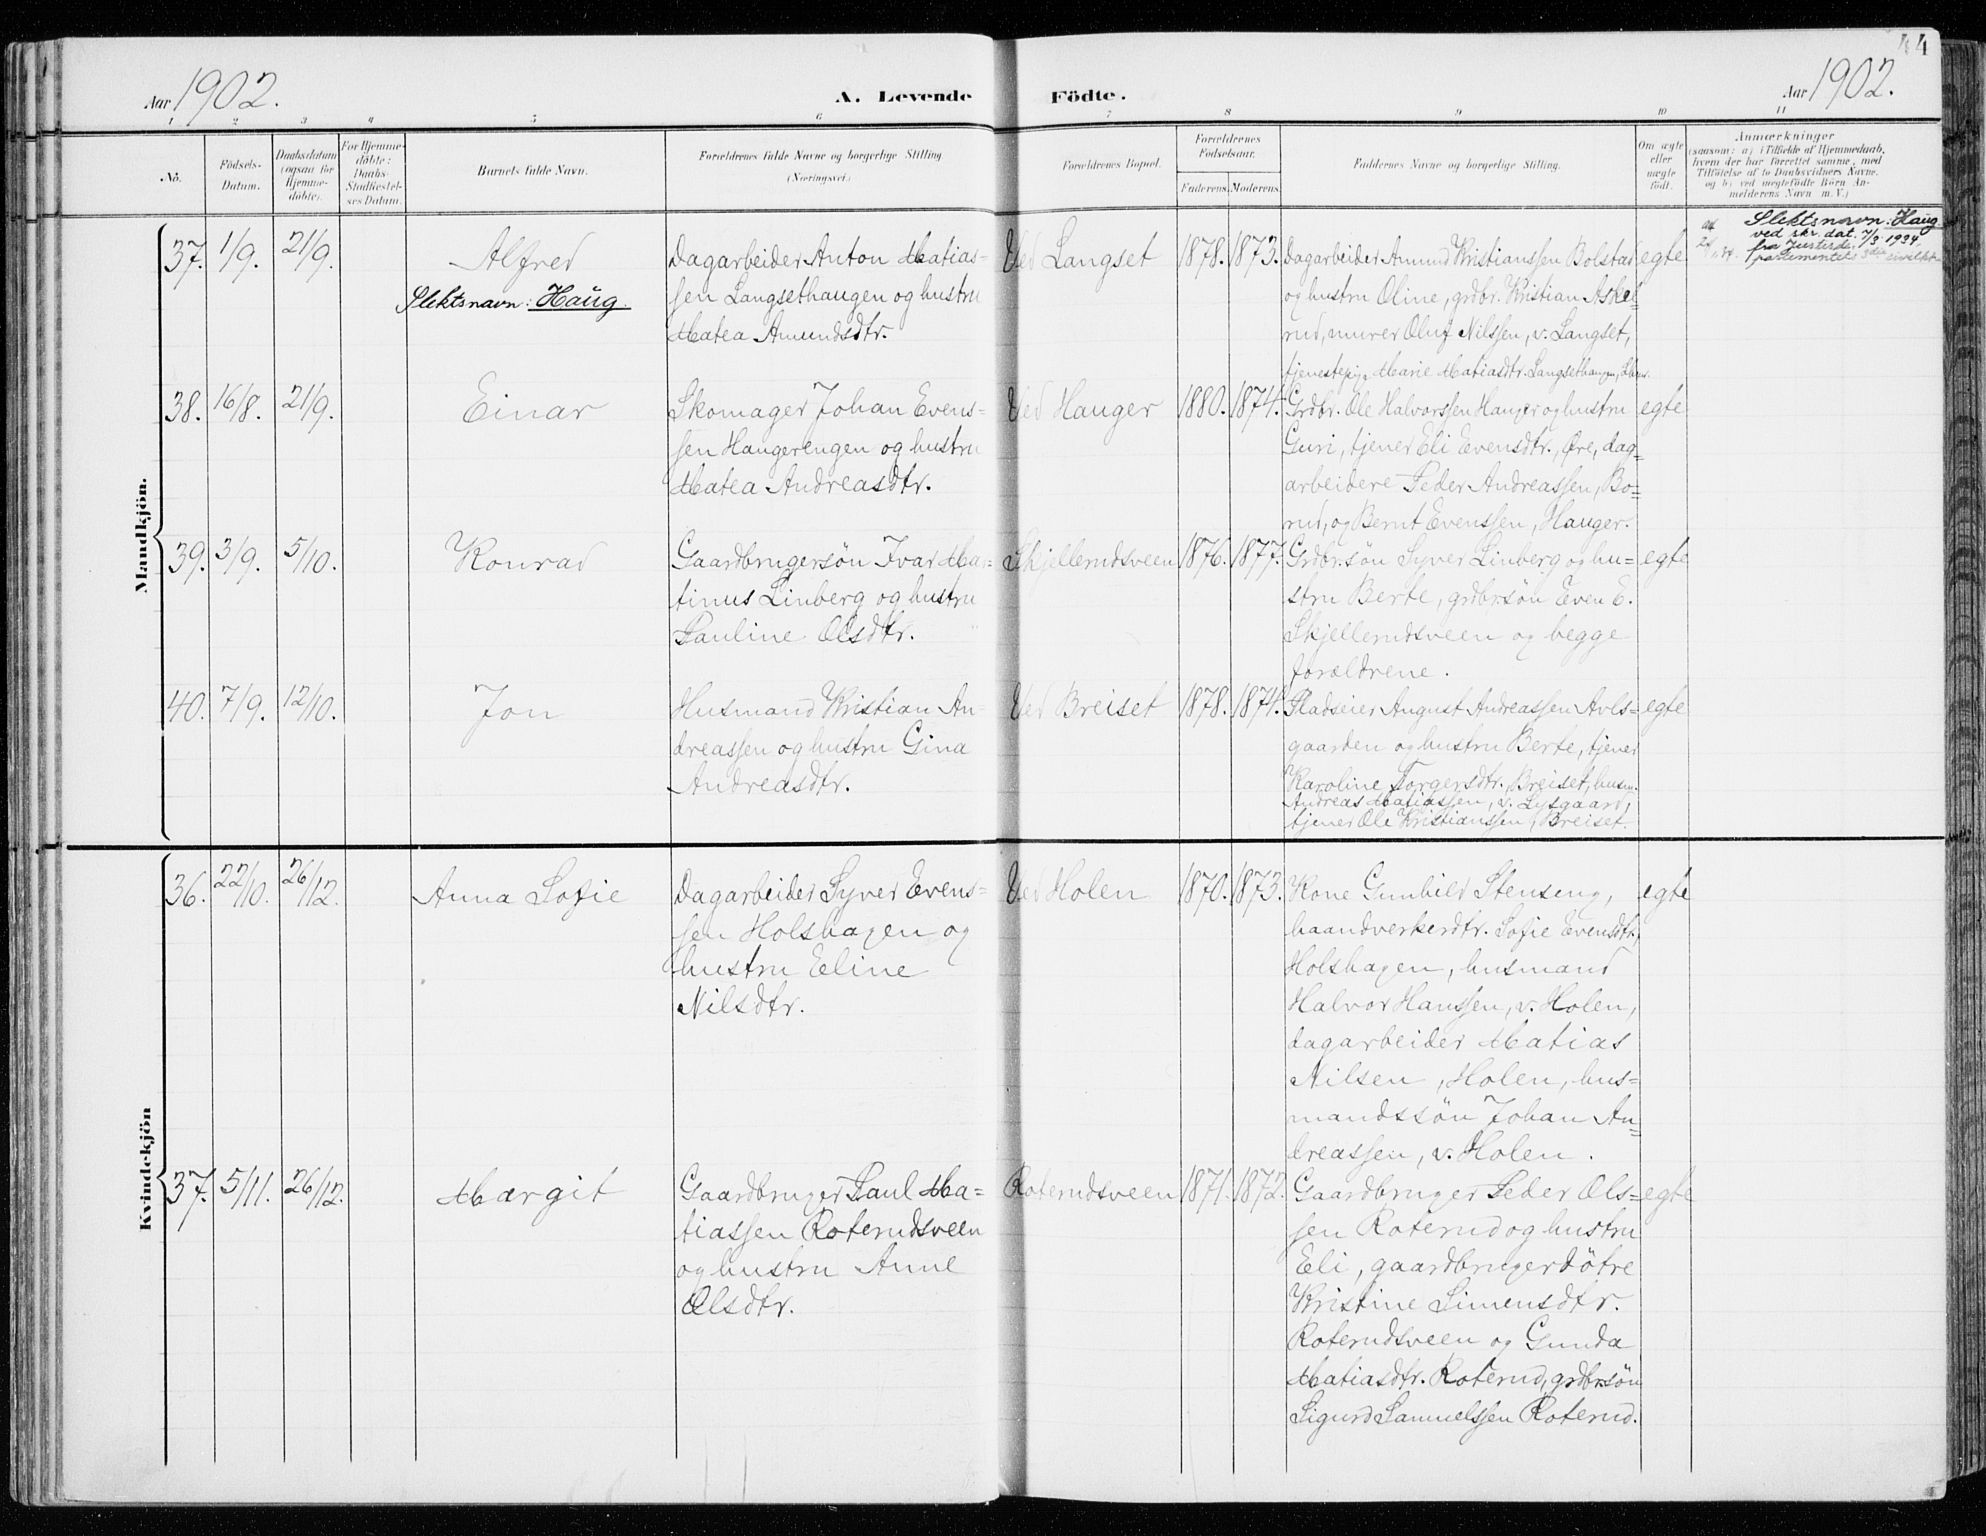 44
Aar 1902.
A. Levende Födte.
Aar 1902.
1 2 3 4 5 6 7 8 9 10 11
No.
Födsels-Datum.
Daabsdatum (ogsaa for Hjemmedöbte).
For Hjemmedöbte: Daabs-Stadfæstelses Datum.
Barnets fulde Navn.
Forældrenes fulde Navne og borgerlige Stilling (Næringsvei.)
Forældrenes Bopæl.
Forældrenes Födselsaar.
Faderens. Moderens.
Faddernes Navne og borgerlige Stilling.
Om ægte eller uægte födt.
Anmærkninger
(saasom: a) i Tilfælde af Hjemmedaab,
hvem der har forrettet samme, med
Tilföielse af to Daabsvidners Navne,
og b) ved uegtefödte Börn An-
melderens Navn m. V.)
Mandkjön.
37. 1/9. 21/9.
Alfred
Slektsnavn: Haug.
Dagarbeider Anton Matias-
sen Langsethaugen og hustru
Matea Amundsdtr.
Ved Langset
1878. 1873.
Dagarbeider Amund Kristianssen Bolstad
og hustru Oline, grdbr. Kristian Askel-
rud, murer Oluf Nilssen, v. Langset,
tjenestepige Marie Matiasdtr. Langsethaugen,
egte
Slektsnavn: Haug
ved skr. dat. 7/3 1934
fra Justisde-
partementets 3die sivilktr.
38. 16/8. 21/9.
Einar
Skomager Johan Evens-
sen Haugerengen og hustru
Matea Andreasdtr.
Ved Hauger
1880. 1874.
Grdbr. Ole Halvorssen Hauger og hustru
Guri, tjener Eli Evensdtr., Øre, dag-
arbeidere Peder Andreassen, Bo-
rud, og Bernt Evenssen, Hauger.
egte
39. 3/9. 5/10.
Konrad
Gaardbrugersön Ivar Ma-
tinus Linberg og hustru
Pauline Olsdtr.
Skjellerudsveen
1876. 1877.
Grdbr.sön Syver Linberg og hu-
stru Berte, grdbrsön Even E.
Skjellerudsveen og begge
forældrene.
egte
40. 7/9. 12/10.
Jon
Husmand Kristian An-
dreassen og hustru Gina
Andreasdtr.
Ved Breiset
1878. 1874.
Pladseier August Andreassen Avls-
gaarden og hustru Berte, tjener
Karoline Torgersdtr., Breiset, husm.
Andreas Matiassen, v. Lysgaard,
tjener Ole Kristianssen, Breiset.
egte
Kvindekjön
36. 22/10. 26/12.
Anna Sofie
Dagarbeider Syver Evens-
sen Holshagen og
hustru Eline
Nilsdtr.
Ved Holen
1870. 1873.
Kone Gunhild Stenseng,
haandverkerdtr. Sofie Evensdtr.,
Holshagen, husmand
Halvor Hanssen, v. Holen,
dagarbeider Matias
Nilsen, Holen, hus-
mandssön Johan An-
dreassen, v. Holen.
egte
37. 5/11. 26/12.
Margit
Gaardbruger Paul Ma-
tiassen Roterudsveen
og hustru Anne
Olsdtr.
Roterudsveen
1871. 1872.
Gaardbruger Peder Ols-
sen Roterud og hustru
Eli, gaardbrugerdötre
Kristine Simensdtr.
Roterudsveen og Gunda
Matiasdtr. Roterud, grdbrsön
Sigurd Samuelssen Roterud.
egte